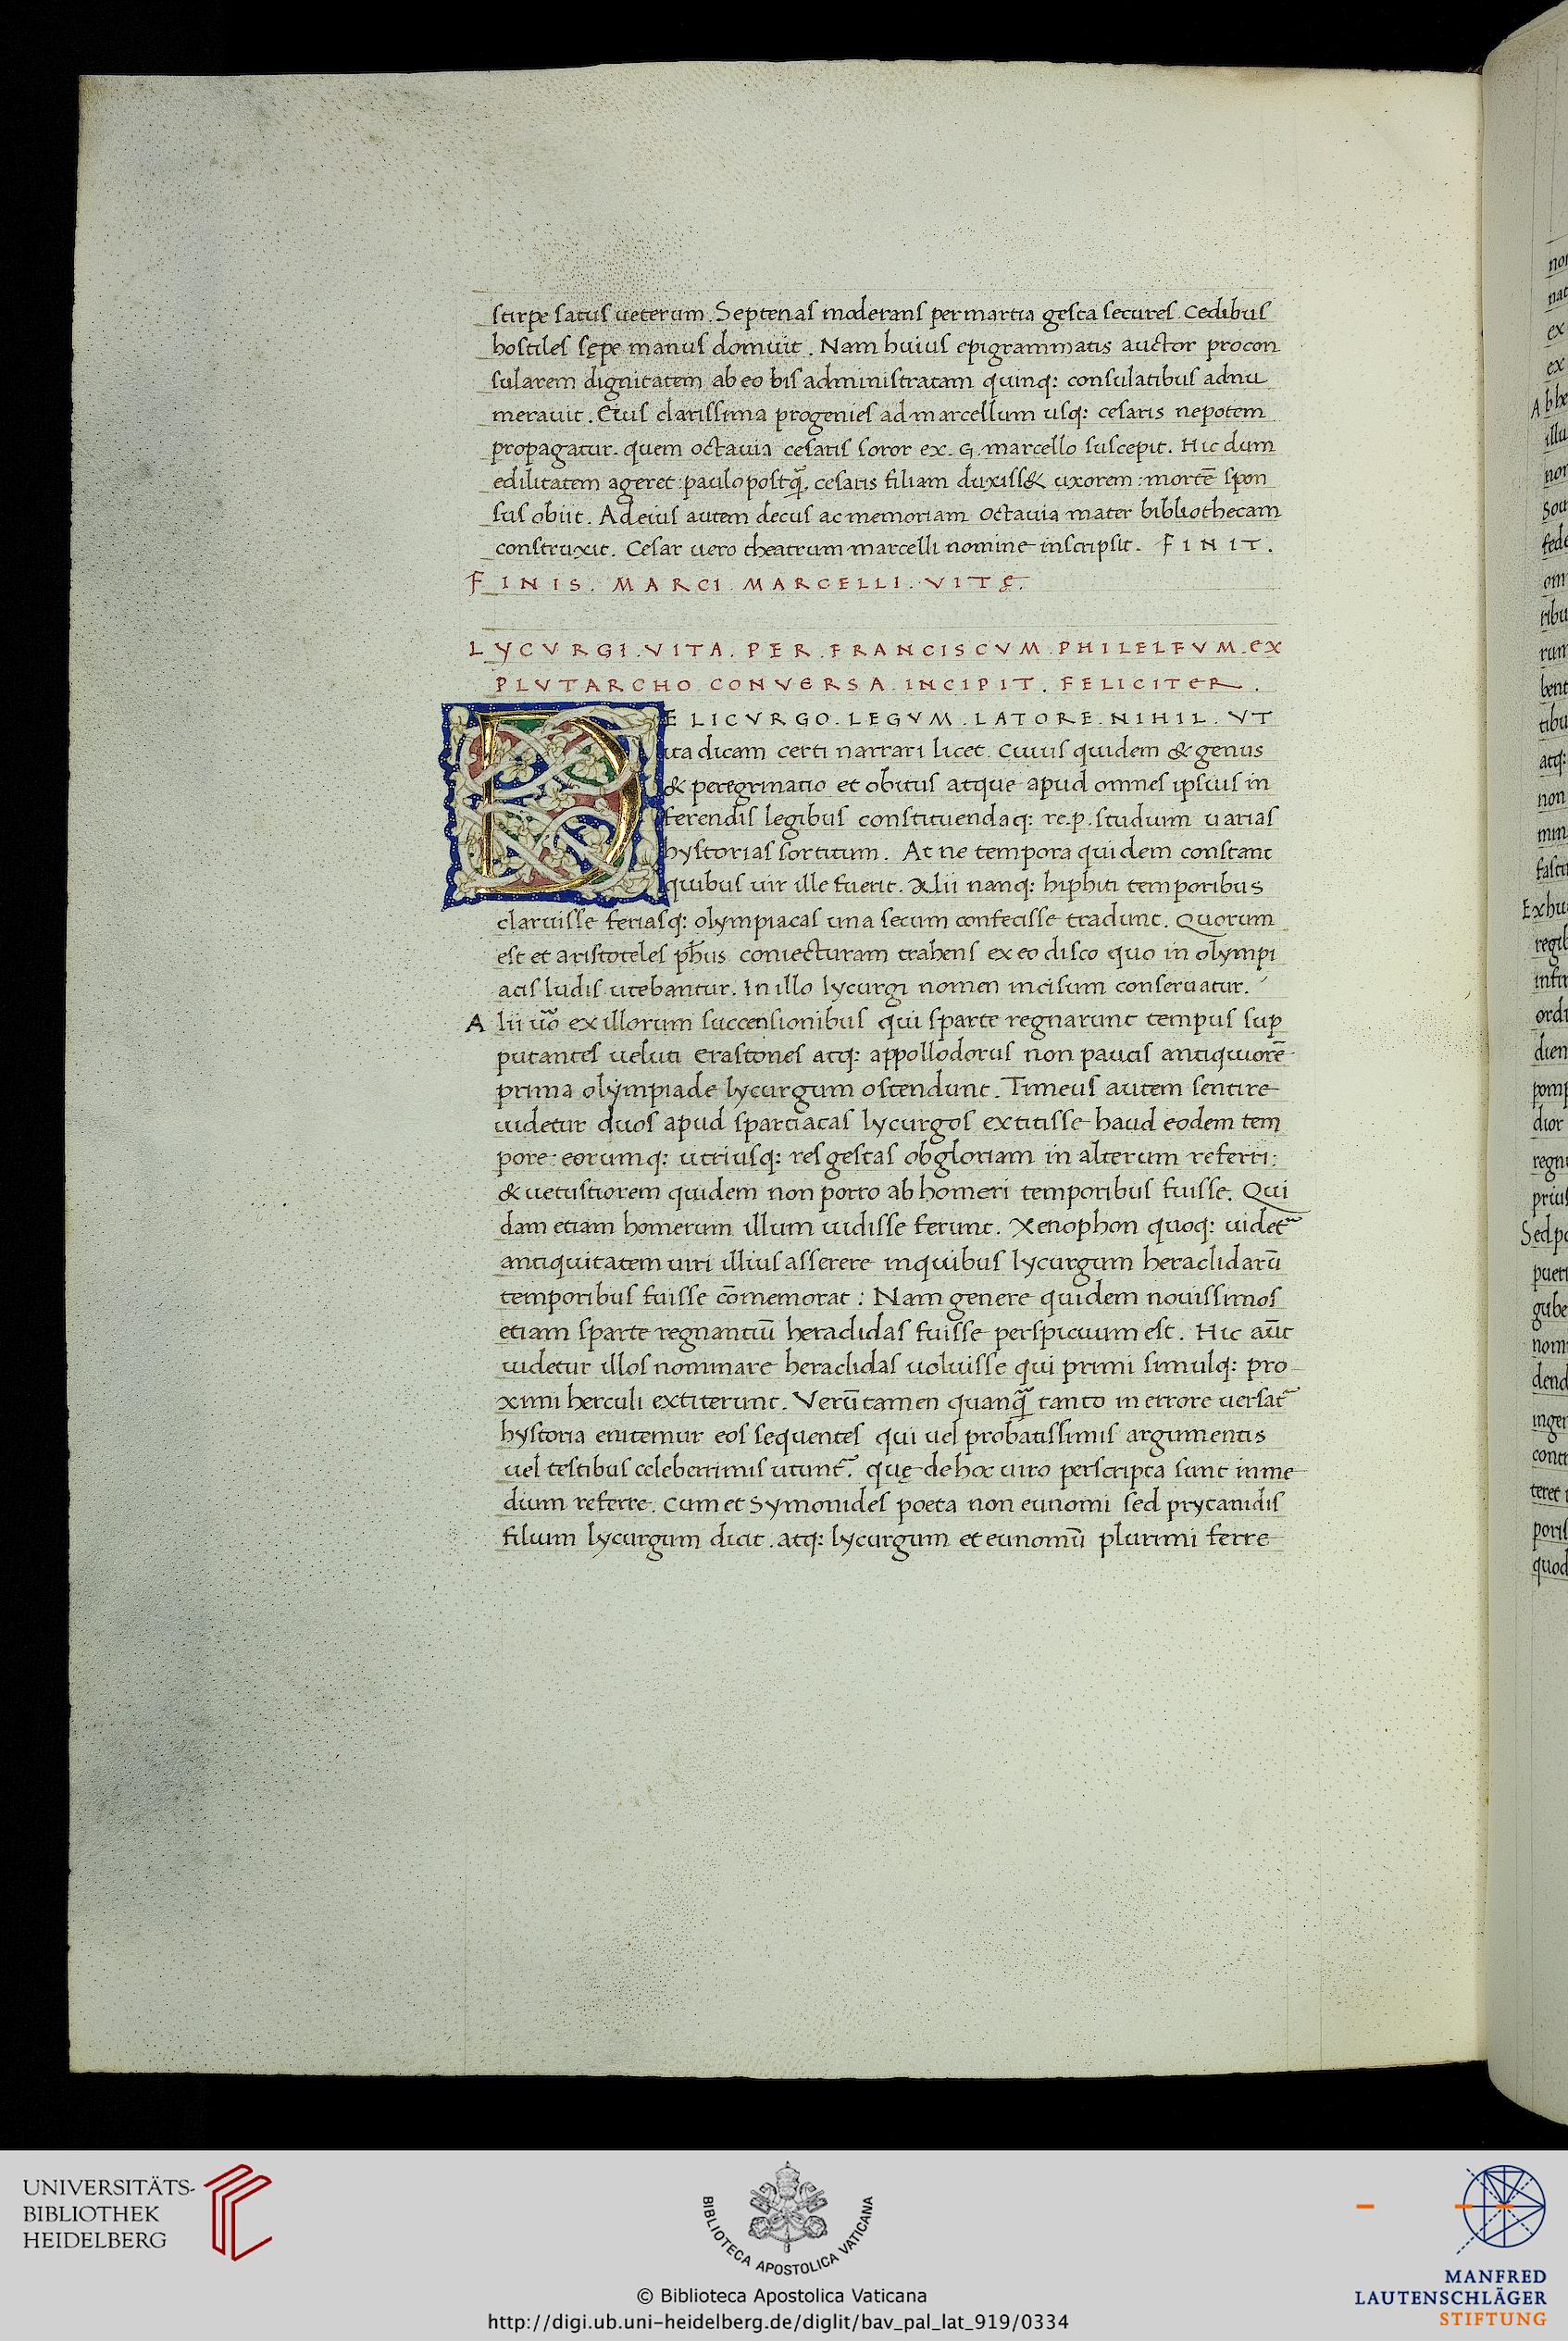 stirpe satus ueterum. Septenas moderans per martia gesta secures. Cedibus
hostiles sępe manus domuit. Nam huius epigrammatis auctor procon
sularem dignitatem ab eo bis administratam quinq: consulatibus adnu
merauit. Eius clarissima progenies ad marcellum usq: cesaris nepotem
propagatur. quem octauia cesaris soror ex. G. marcello suscepit. Hic dum
edilitatem ageret: paulo postq̃. cesaris filiam duxiss& uxorem: mortē spon
sus obiit. Ad eius autem decus ac memoriam Octauia mater bibliothecam
construxit. Cesar uero theatrum marcelli nomine inscripsit. FINIT.
FINIS. MARCI. MARCELLI. VITĘ.
LYCVRGI. VITA. PER. FRANCISCVM. PHILELFVM. EX
PLVTARCHO. CONVERSA. INCIPIT. FELICITER.
DE LICVRGO. LEGVM. LATORE. NIHIL. VT
ita dicam certi narrari licet. Cuius quidem & genus
& peregrinatio et obitus atque apud omnes ipsius in
ferendis legibus constituendaq: re.p. studium uarias
hystorias sortitum. At ne tempora quidem constant
quibus uir ille fuerit. Alii nanq: hiphiti temporibus
claruisse feriasq: olympiacas una secum confecisse tradunt. Quorum
est et aristoteles ph̄us coniecturam trahens ex eo disco quo in olympi
acis ludis utebantur. In illo lycurgi nomen incisum conseruatur.
Alii u̅o ex illorum succensionibus qui sparte regnarunt tempus sup
putantes ueluti erastones atq: appollodorus non paucis antiquiorē
prima olympiade lycurgum ostendunt. Timeus autem sentire
uidetur duos apud spartiacas lycurgos extitisse haud eodem tem
pore: eorumq: utriusq: res gestas ob gloriam in alterum referri:
& uetustiorem quidem non porro ab homeri temporibus fuisse. Qui
dam etiam homerum illum uidisse ferunt. Xenophon quoq: uidet᷑
antiquitatem uiri illius asserere in quibus lycurgum heraclidarū
temporibus fuisse cōmemorat: Nam genere quidem nouissimos
etiam sparte regnantiū heraclidas fuisse perspicuum est. Hic aūt
uidetur illos nominare heraclidas uoluisse qui primi simulq: pro
ximi herculi extiterunt. Verūtamen quanq̃ tanto in errore uersat᷑
hystoria enitemur eos sequentes qui uel probatissimis argumentis
uel testibus celeberrimis utunt᷑. quę de hoc uiro perscripta sunt in me
dium referre. Cum et Symonides poeta non eunomi sed prytanidis
filium lycurgum dicit. atq: lycurgum et eunomū plurimi ferre
UNIVERSITÄTS-
BIBLIOTHEK
HEIDELBERG
BIBLIOTECA APOSTOLICA VATICANA
© Biblioteca Apostolica Vaticana
http://digi.ub.uni-heidelberg.de/diglit/bav_pal_lat_919/0334
MANFRED
LAUTENSCHLÄGER
STIFTUNG